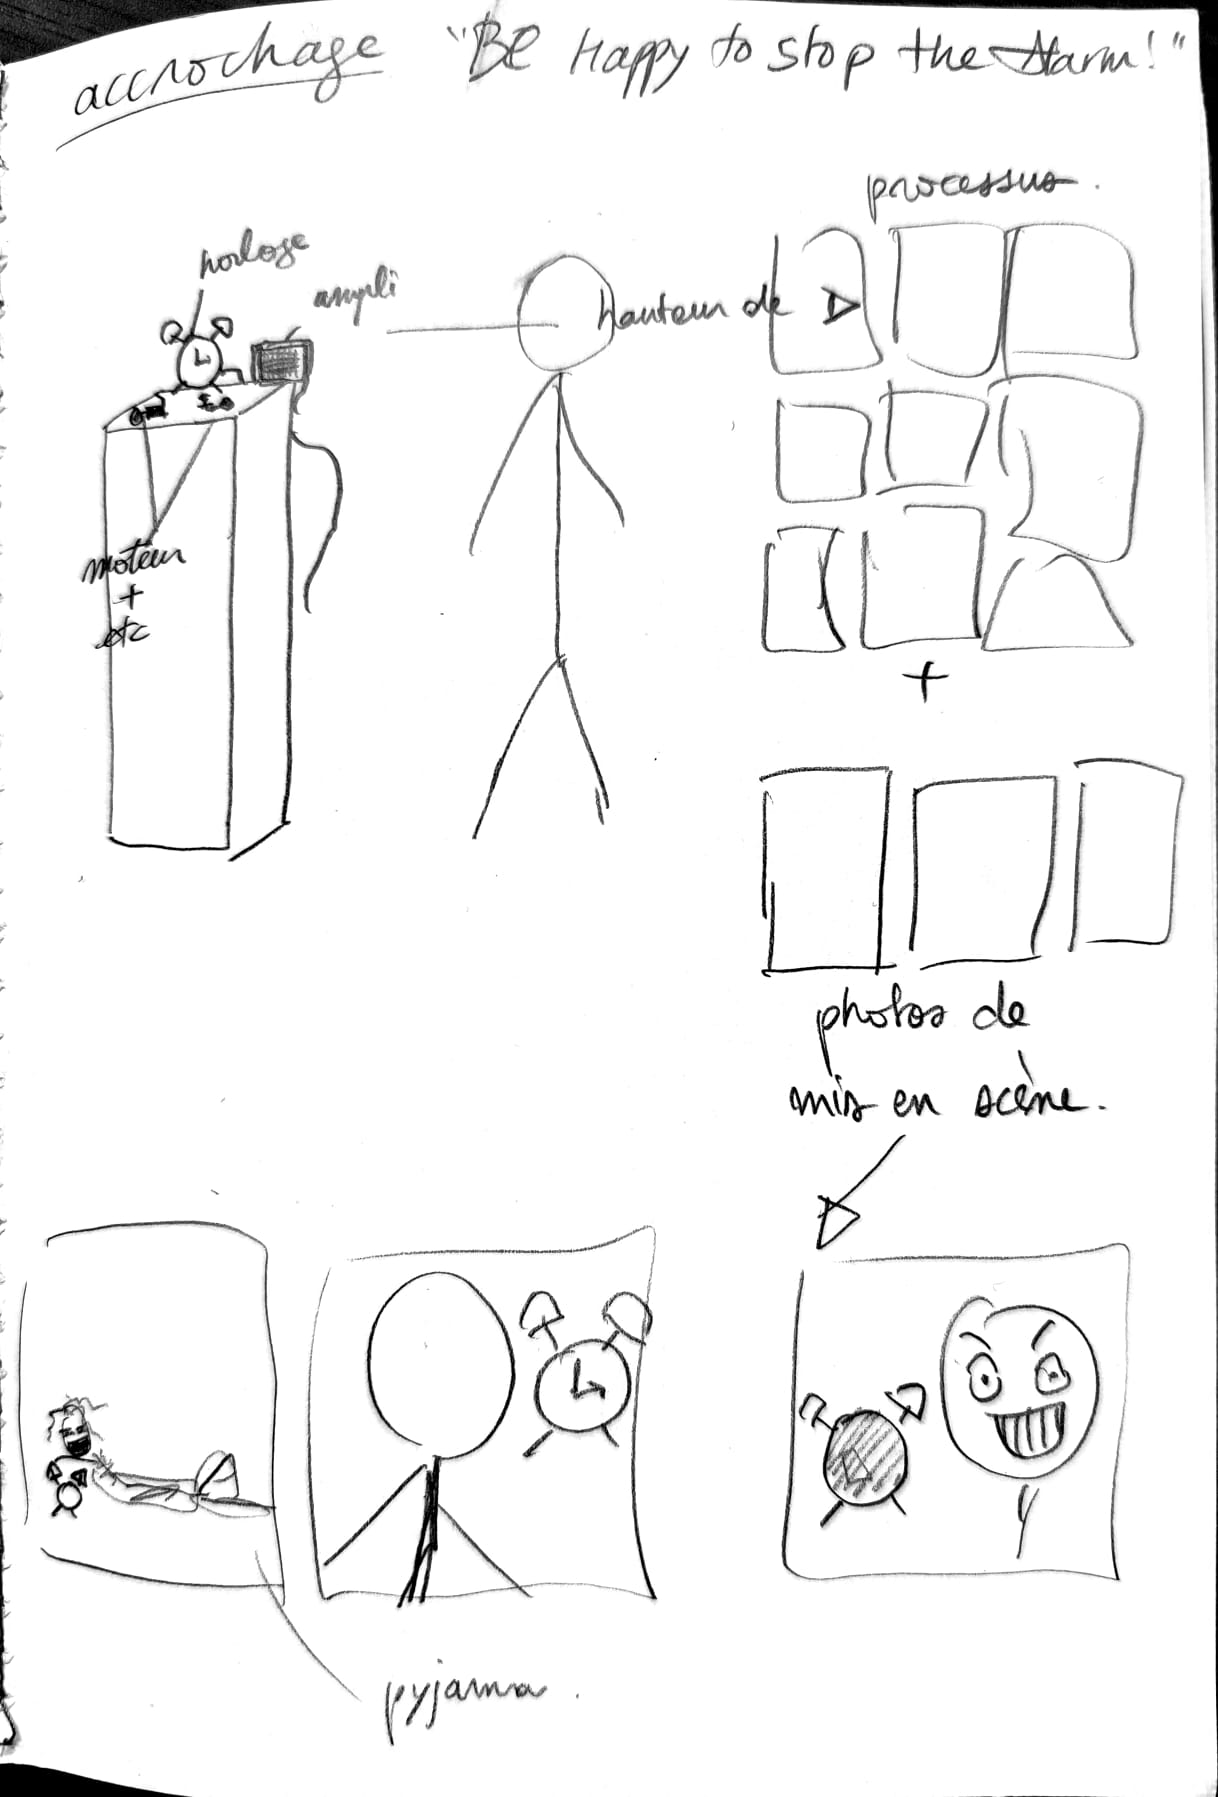 accrochage "BE Happy to stop the Alarm!"
processus.
horloge
ampli
hauteur de
moteur
+
etc
+
photos de
mis en scène.
pyjama.